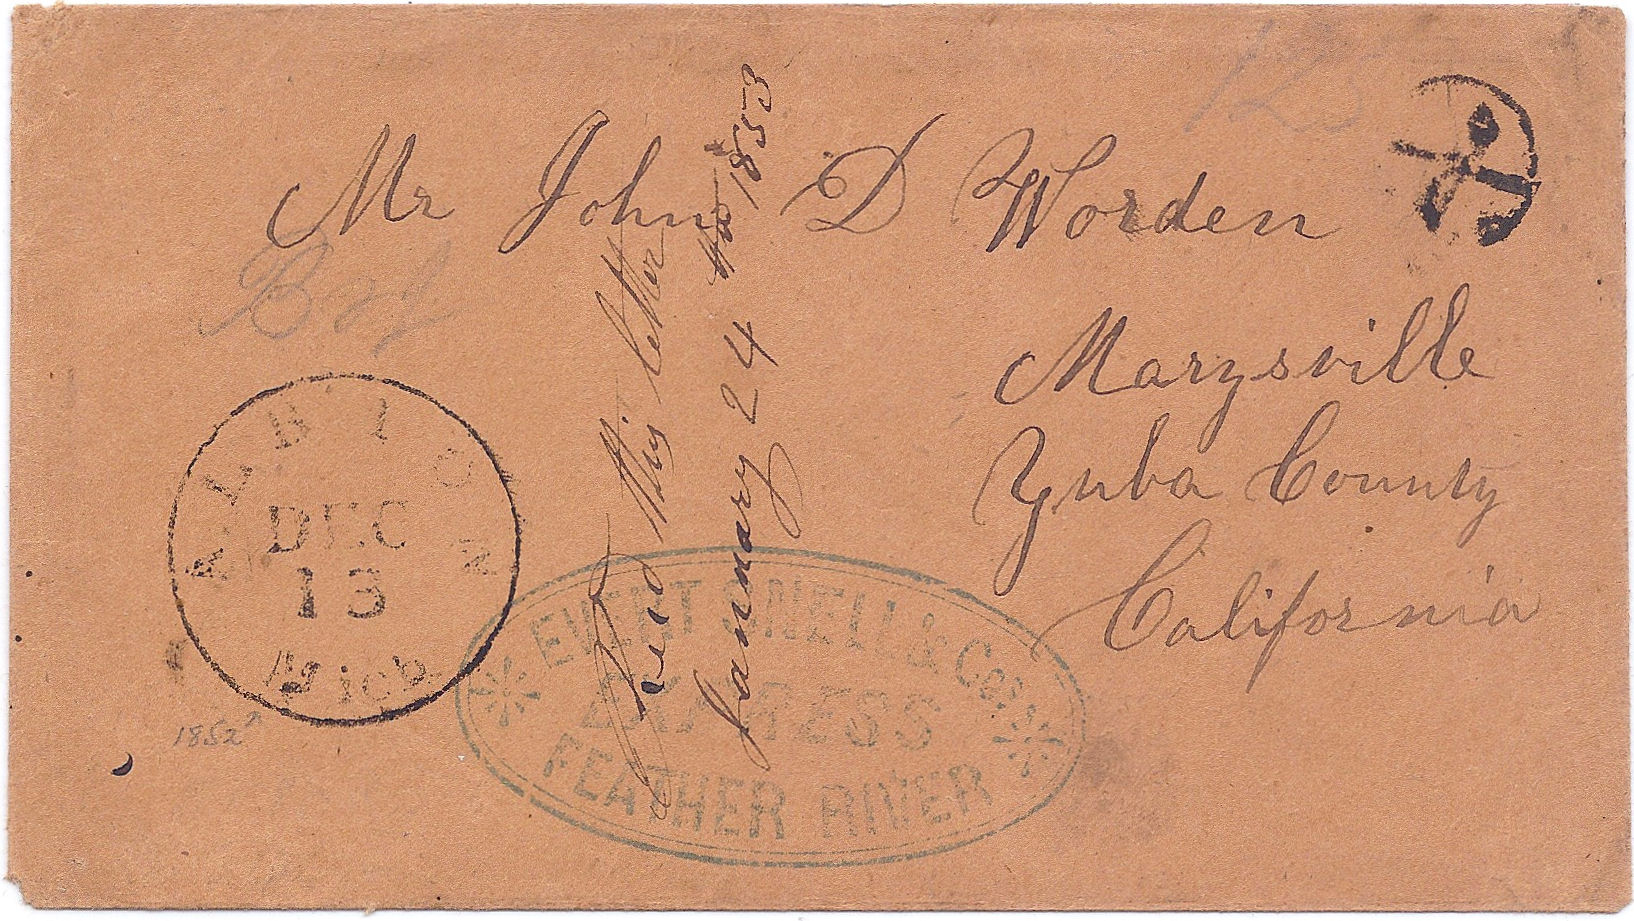 Mr John D Worden
Marysville
Yuba County
California
ALBION
DEC
13
Mich
1852
Recd this letter
January 24 1853
EVERT SNELL & Co's
EXPRESS
FEATHER RIVER
125